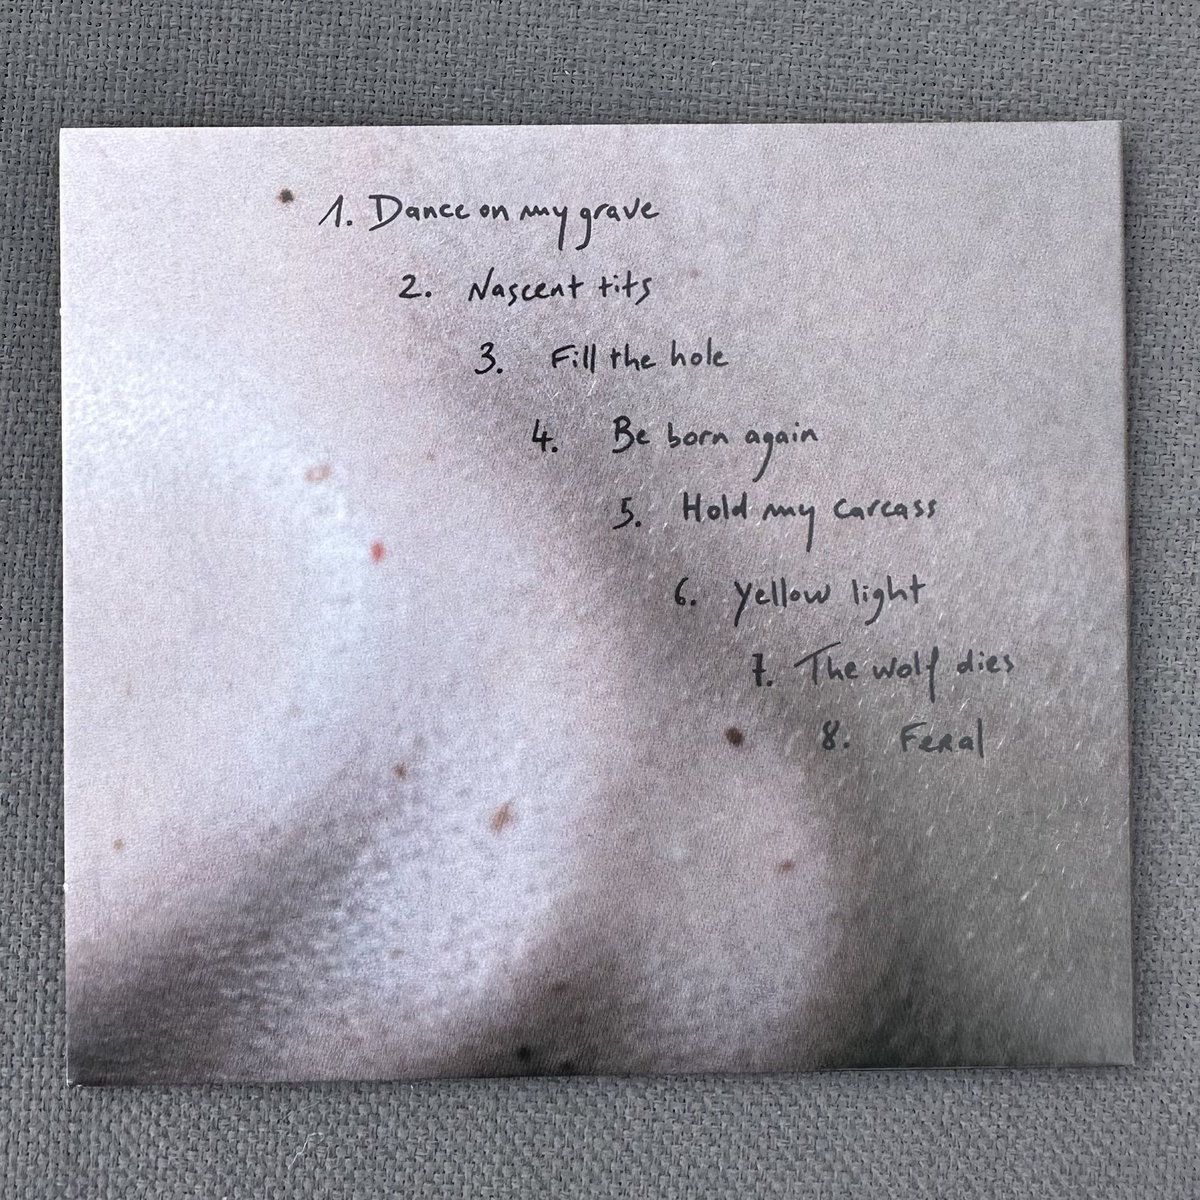 1. Dance on my grave
2. Nascent tits
3. Fill the hole
4. Be born again
5. Hold my carcass
6. Yellow light
7. The wolf dies
8. Feral